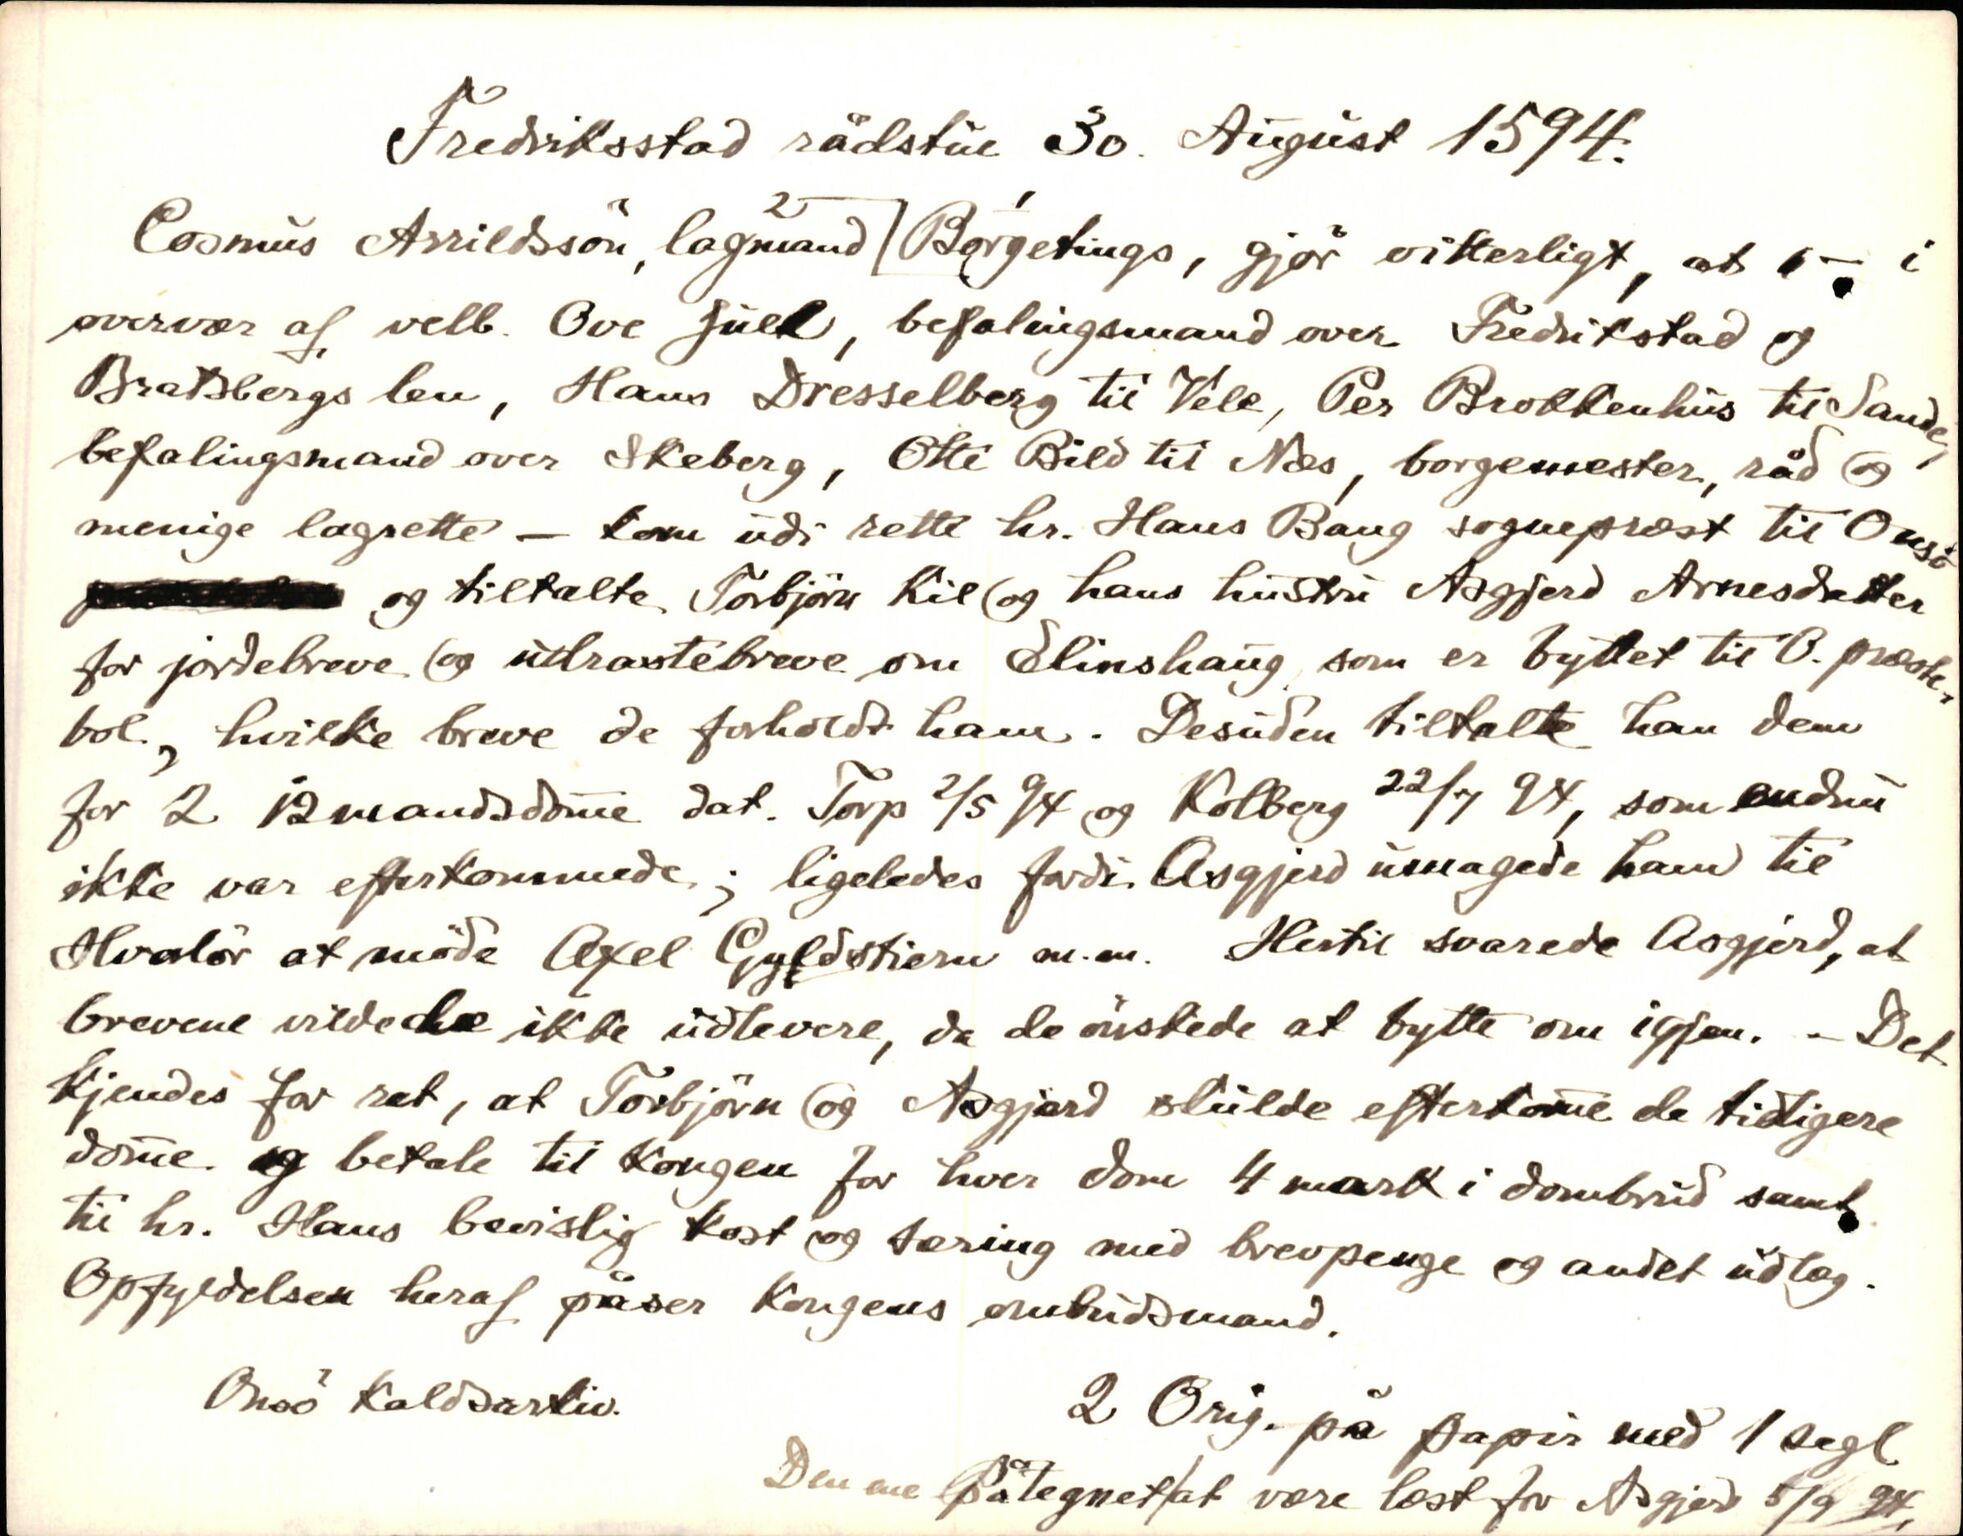 Fredriksstad rådstue 30. August 1594.
Cosmus Arrildssön, lagmand Borgetings, gjör vitterligt, at – i
overvær af velb. Ove Juel, befalingsmand over Fredrikstad og
Bratsbergs len, Hans Dresselberg til Vele, Per Brokkenhus til Sande,
befalingsmand over Skeberg, Otte Bild til Næs, borgemester, råd og
menige lagrette – kom udi rette hr. Hans Bang sogneprest til Onsö
og tiltalte Torbjörn Kil og hans hustru Asgjerd Arnesdatter
for jordebreve og udrastebreve om Elinshaug, som er byttet til O. preste-
bol, hvilke breve de forholdt ham. Desuden tiltalte han dem
for 2 12 mandsdom̅e dat. Torp 2/5 94 og Kolberg 22/7 94, som endnu
ikke var efterkommede; ligeledes fordi Asgjerd umagede ham til
Hvalör at möde Axel Gyldstiern m.m. Hertil svarede Asgjerd, at
brevene vilde de ikke udlevere, da de önskede at bytte om igjen. – Det
kjendes for ret, at Torbjörn og Asgjerd skulde efterkom̅e de tidligere
dom̅e og betale til Kongen for hver dom 4 mark i dombrud samt
til hr. Hans bevislig kost og tæring med brevpenge og andet udlag.
Opfyldelsen heraf påser Kongens ombudsmand.
Onsö Kaldsarkiv.
2 Orig. på papir med 1 segl
Den ene påtegnet at være læst for Asgjerd 5/9 94.